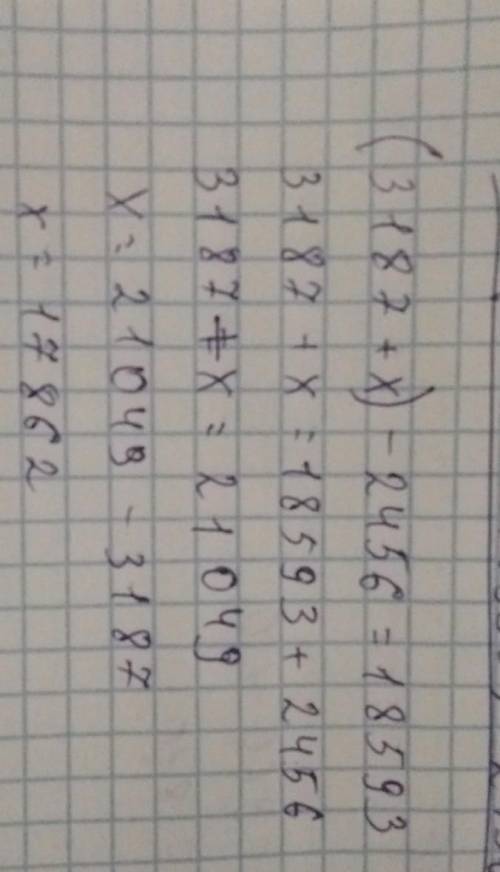 (3187 + x) - 2456 = 18593
3187 + x = 18593 + 2456
3187 + x = 21049
x = 21049 - 3187
x = 17862